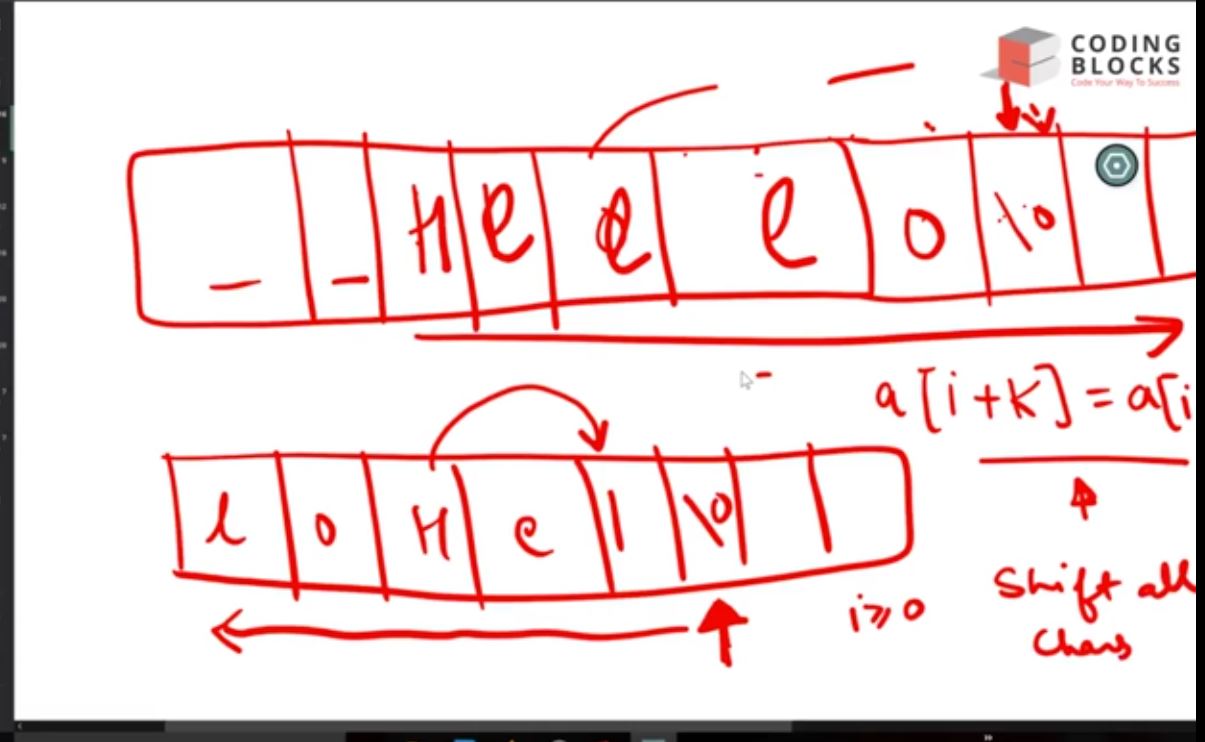 CODING
BLOCKS
Code Your Way To Success
_ _ H e l l o \0
a[i+k] = a[i
l o H e l \0
i≥0
Shift all
Chars